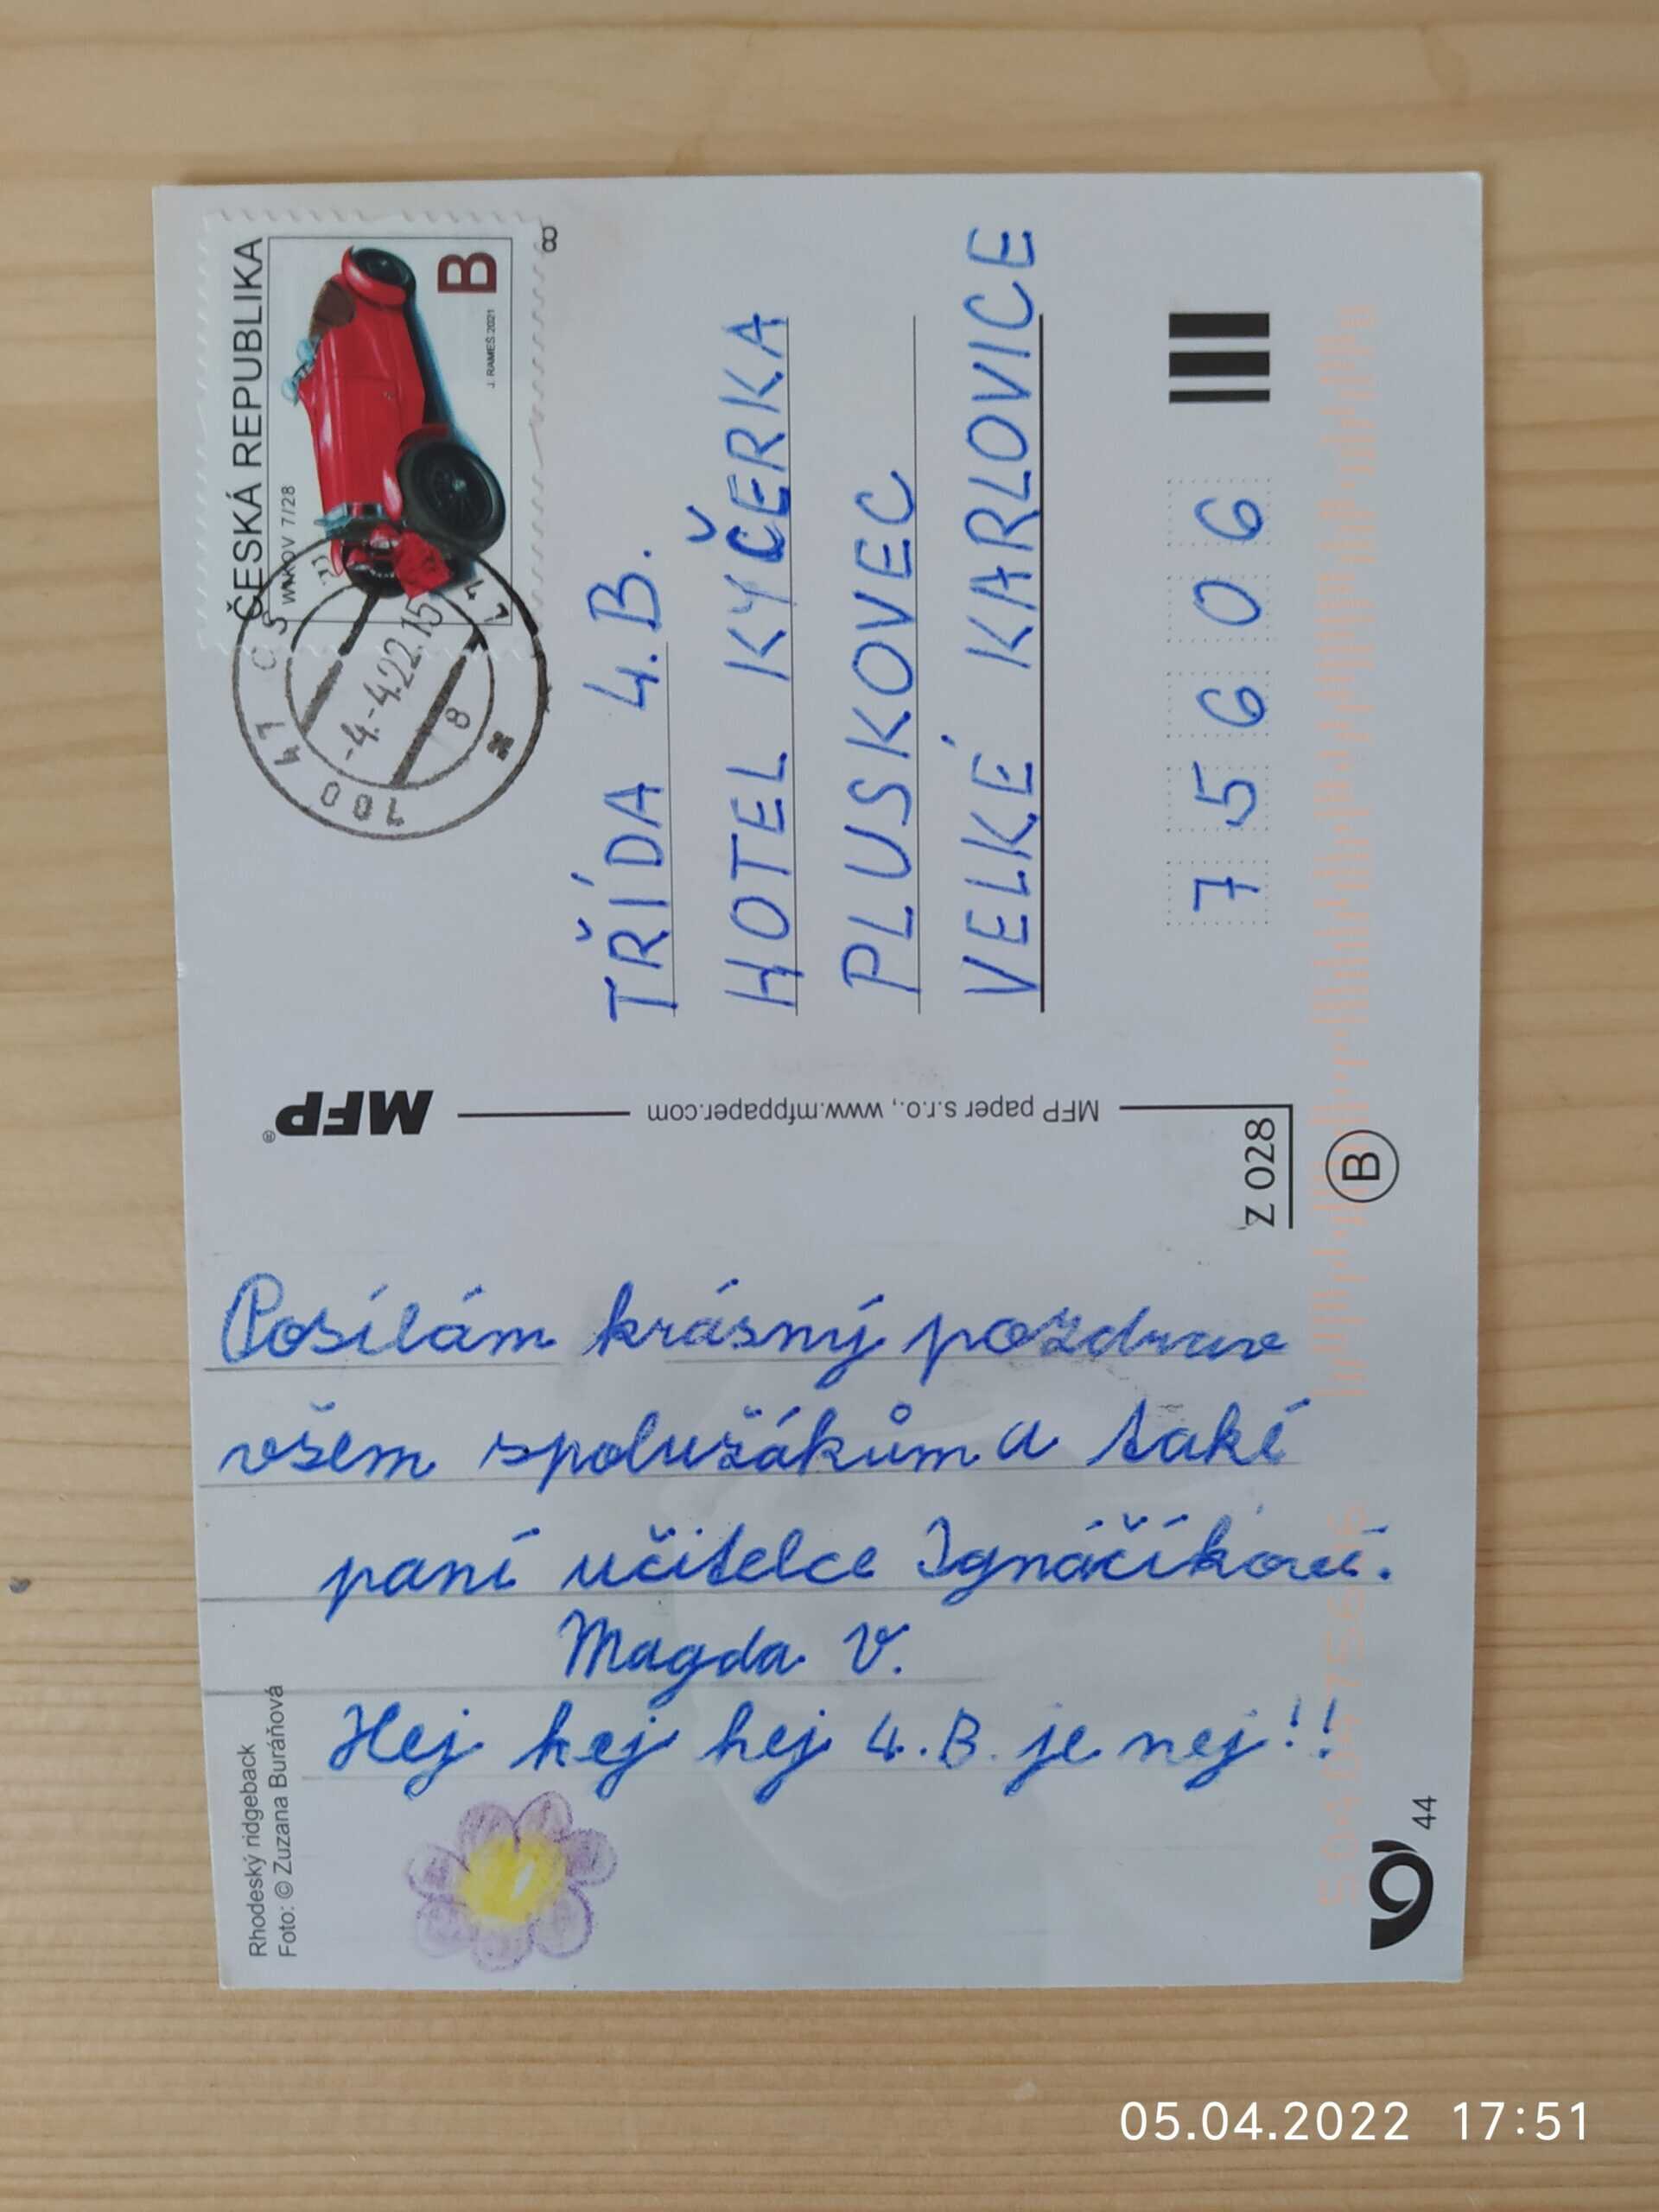 Rhodeský ridgeback
Foto: © Zuzana Buráňová
Posílám krásný pozdrav
všem spolužákům a také
paní učitelce Ignáčíkové.
Magda V.
Hej hej hej 4.B. je nej!!
44
MFP®
MFP paper s.r.o., www.mfppaper.com
Z 028
B
ČESKÁ REPUBLIKA
WIKOV 7/28
B
J. RAMEŠ 2021
8
100 41
-4.-4.22.15
8
TŘÍDA 4.B.
HOTEL KYČERKA
PLUSKOVEC
VELKÉ KARLOVICE
75606
05.04.2022 17:51